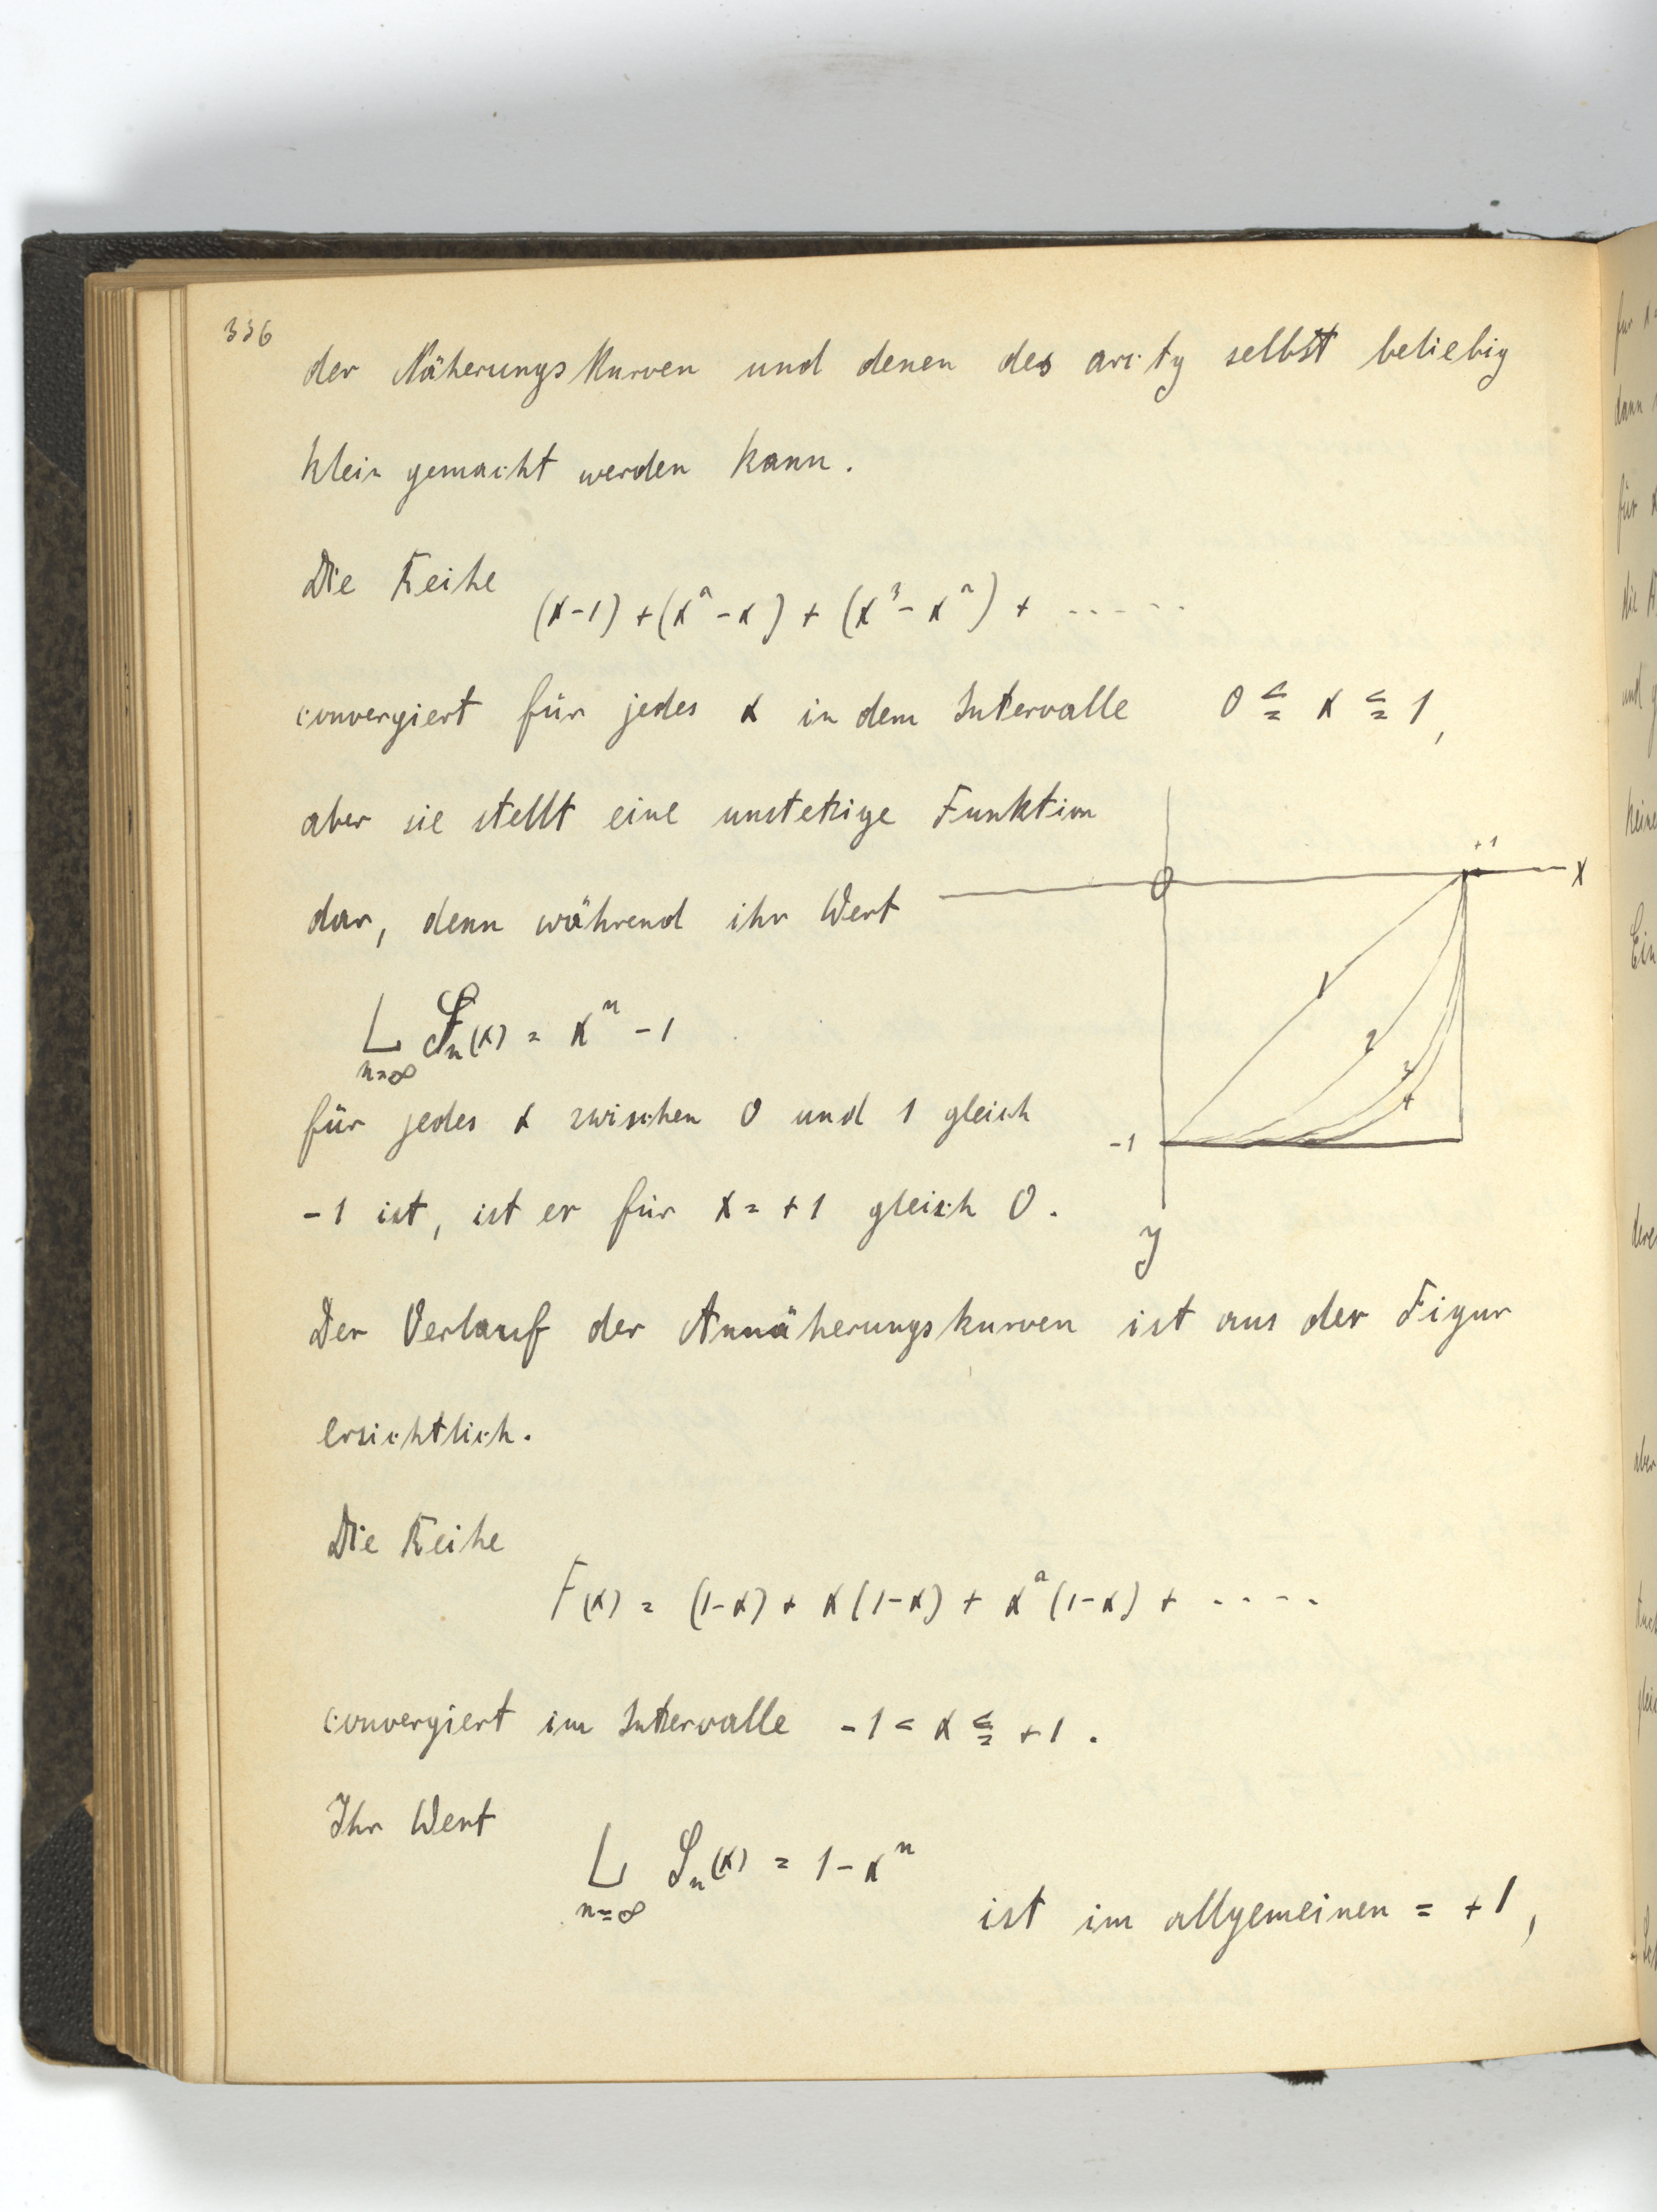 336
der Näherungskurven und denen des arc tg selbst beliebig
klein gemacht werden kann.
Die Reihe
(x-1) + (x² - x) + (x³ - x²) + .....
convergiert für jedes x in dem Intervalle 0 ≦ x ≦ 1,
aber sie stellt eine unstetige Funktion
dar, denn während ihr Wert
L Sn(x) = xⁿ - 1
n=∞
für jedes x zwischen 0 und 1 gleich
-1 ist, ist er für x = +1 gleich 0.
0
+1
x
1
2
3
4
-1
y
Der Verlauf der Annäherungskurven ist aus der Figur
ersichtlich.
Die Reihe
F(x) = (1-x) + x(1-x) + x²(1-x) + ....
convergiert im Intervalle -1 < x ≦ +1.
Ihr Wert
L Sn(x) = 1 - xⁿ
n=∞
ist im allgemeinen = +1,
für
dann
für
die
und